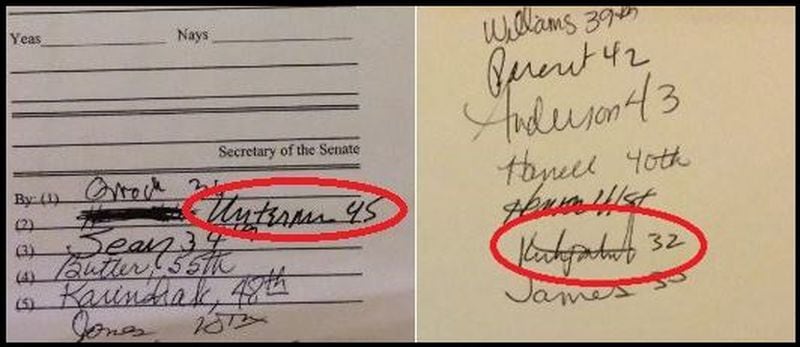 Yeas Nays
Secretary of the Senate
By: (1) Orrock
(2) Unterman 45
(3) Seay 34th
(4) Butler, 55th
(5) Karinshak, 48th
Jones 10th
Williams 39th
Parent 42
Anderson 43
Harrell 40th
Henson 41st
Kirkpatrick 32
James 35